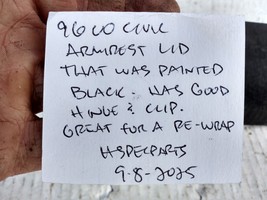 96 00 CIVIC
ARMREST LID
THAT WAS PAINTED
BLACK. HAS GOOD
HINGE & CLIP.
GREAT FOR A RE-WRAP
HSPECPARTS
9-8-2025